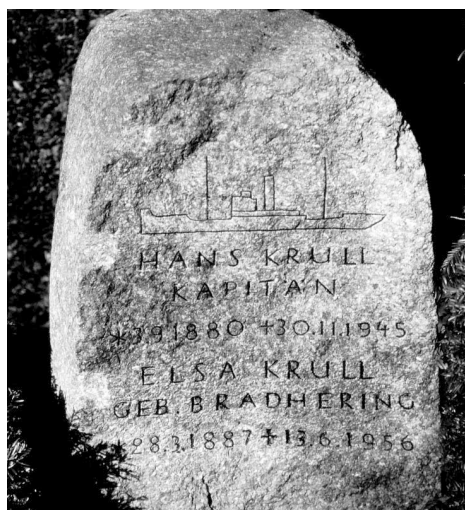 HANS KRULL
KAPITÄN
*3.9.1880 +30.11.1945
ELSA KRULL
GEB. BRADHERING
*28.3.1887 +13.6.1956